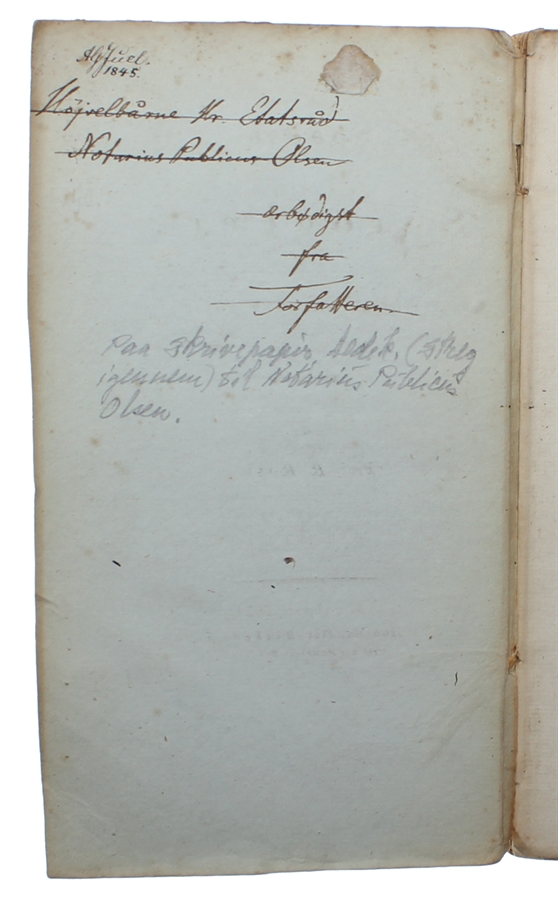 Juel.
1845.
Højvelbårne Hr. Etatsråd
Notarius Publicus Olsen
ærbødigst
fra
Forfatteren.
Paa skrivepapir, dedik. (streg
igennem) til Notarius Publicus
Olsen.